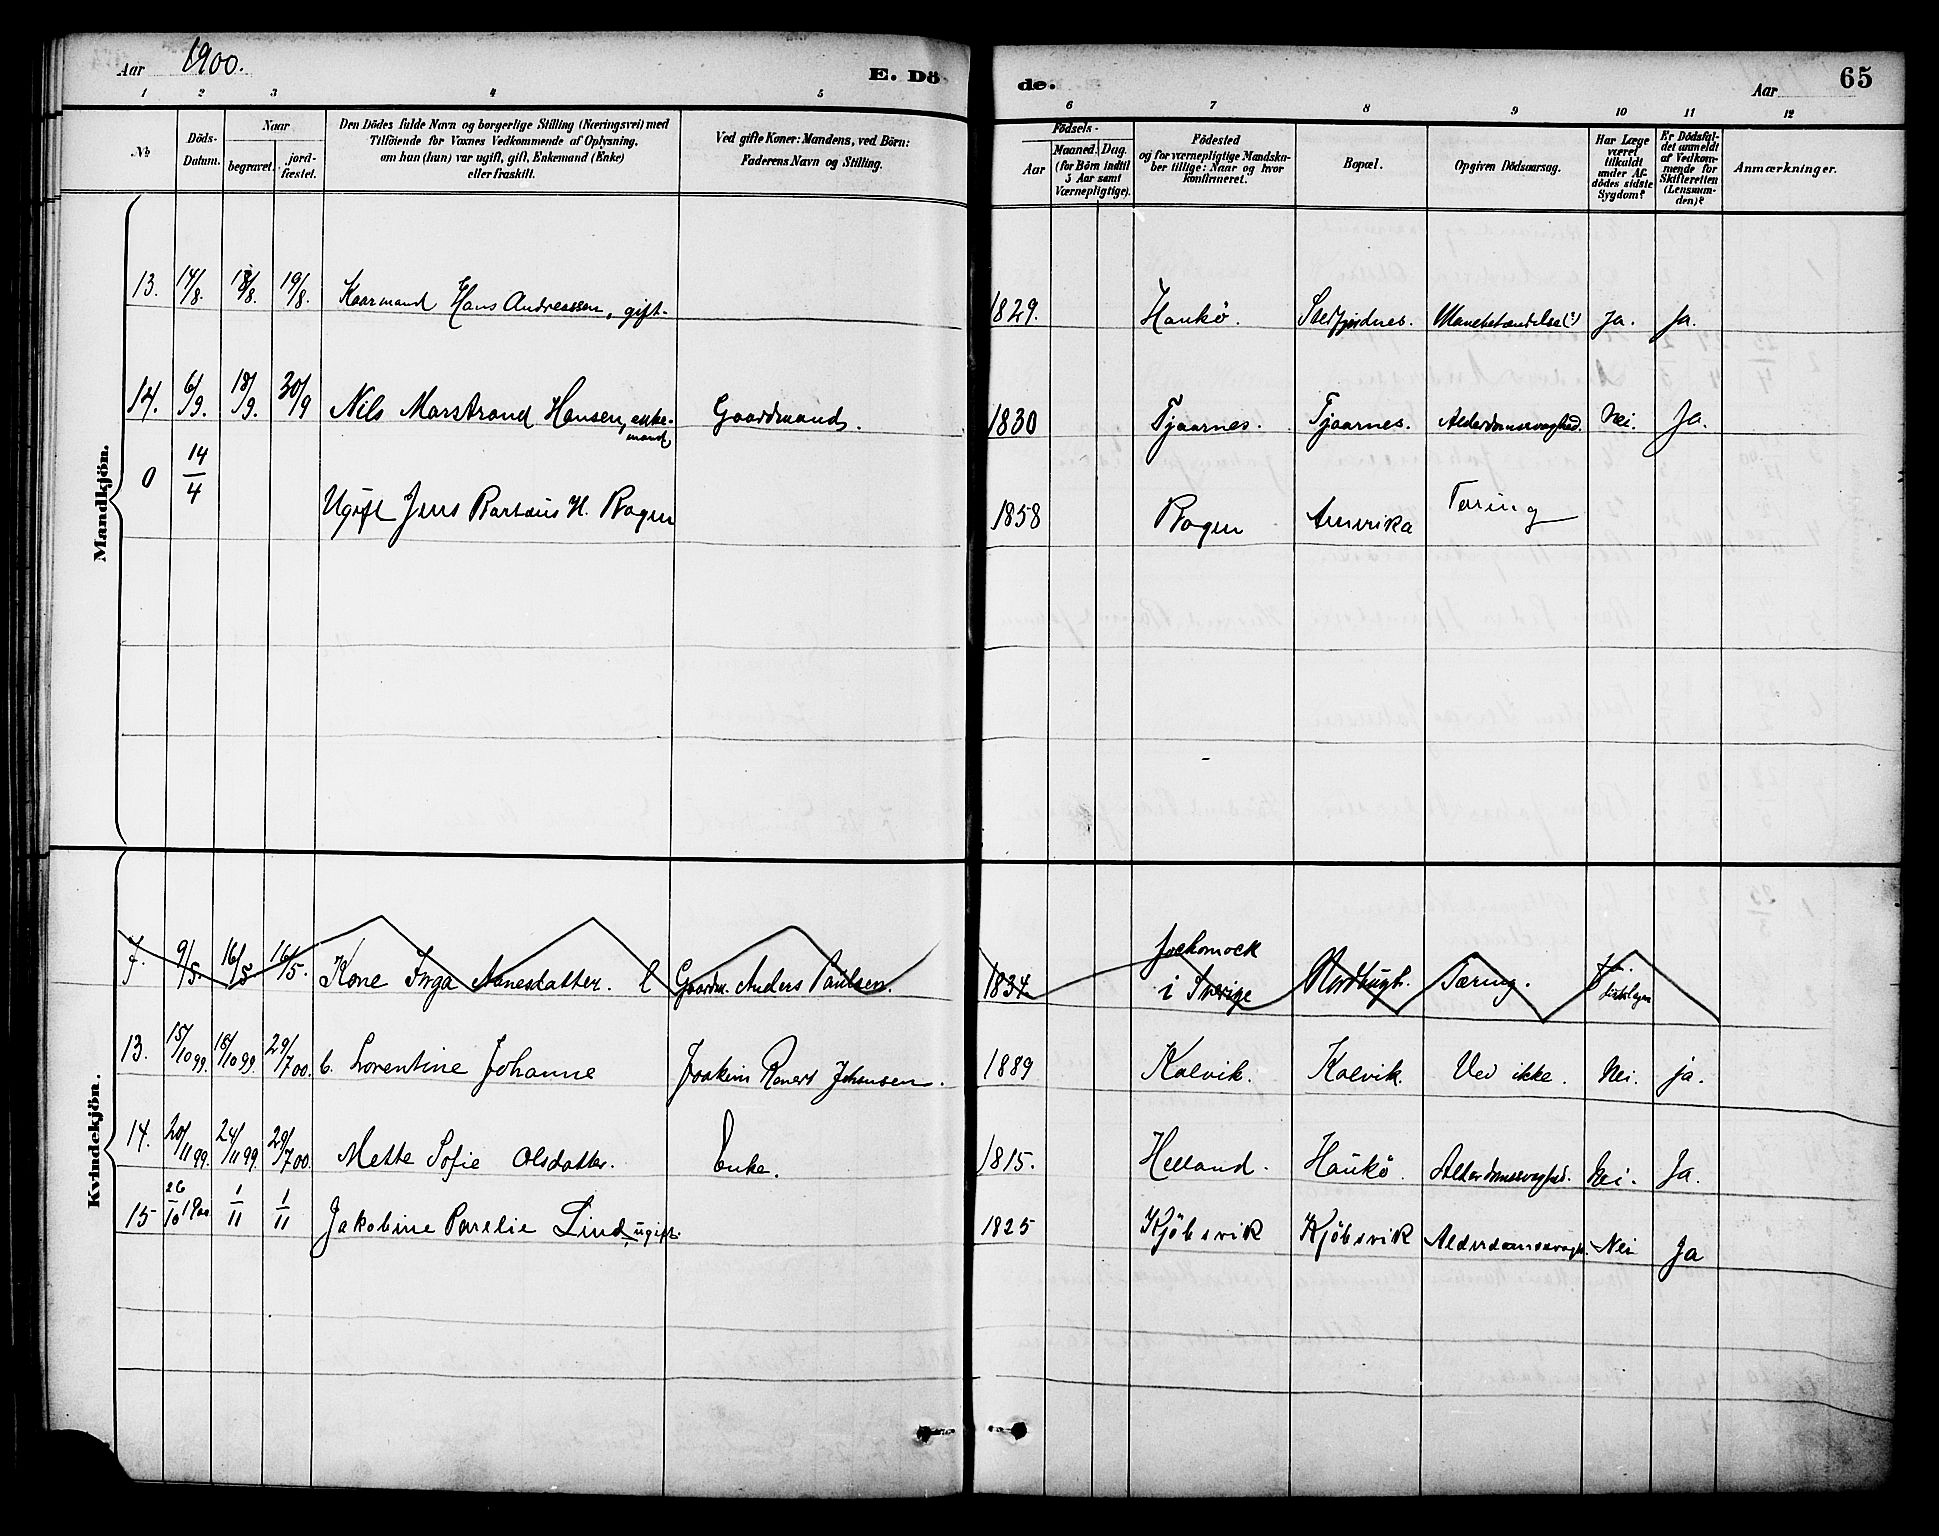 Aar 1900. E. Dö de. Aar 65
1 2 3 4 5 6 7 8 9 10 11 12
No
Döds-
Datum.
Naar
begravet.
jord-
fæstet.
Den Dödes fulde Navn og borgerlige Stilling (Næringsvei) med
Tilföiende for Voxnes Vedkommende af Oplysning,
om han (hun) var ugift, gift, Enkemand (Enke)
eller fraskilt.
Ved gifte Koner: Mandens, ved Börn:
Faderens Navn og Stilling.
Födsels-
Aar
Maaned. Dag.
(for Börn indtil
5 Aar samt
Værnepligtige).
Födested
og for værnepligtige Mandska-
ber tillige: Naar og hvor
konfirmeret.
Bopæl.
Opgiven Dödsaarsag.
Har Læge
været
tilkaldt
under Af-
dödes sidste
Sygdom?
Er Dödsfal-
det anmeldt
af Vedkom-
mende for
Skifteretten
(Lensman-
den)?
Anmærkninger.
Mandkjön.
13. 14/8. 18/8. 19/8. Kaarmand Hans Andreassen, gift. 1829. Haukö. Stedfjordnes. Mavebetændelse(?) Ja. Ja.
14. 6/9. 18/9. 30/9 Nils Marstrand Hansen, enke-
mand, Gaardmand. 1830 Tjaarnes. Tjaarnes. Alderdomssvaghed. Nei. Ja.
0 14/4 Ugift Jens Bartæus H. Bogen 1858 Bogen Amerika Tæring
Kvindekjön.
7. 9/5. 16/5 16/5. Kone Inga Aanesdatter. Gaardm. Anders Paulsen. 1834. Jockomock
i Sverige Nordbugt. Tæring.
13. 15/10 99. 18/10 99. 29/7 00. b. Lorentine Johanne Joakim Ranert Johansen. 1889 Kalvik. Kalvik. Ved ikke. Nei. ja.
14. 20/11 99. 24/11 99. 29/7 00. Mette Sofie Olsdatter. Enke. 1815. Helland. Haukö. Alderdomssvaghed. Nei. Ja.
15 26/10 1900 1/11 1/11 Jakobine Parelie Lind, ugift. 1825 Kjöbsvik Kjöbsvik Alderdomssvagh. Nei Ja